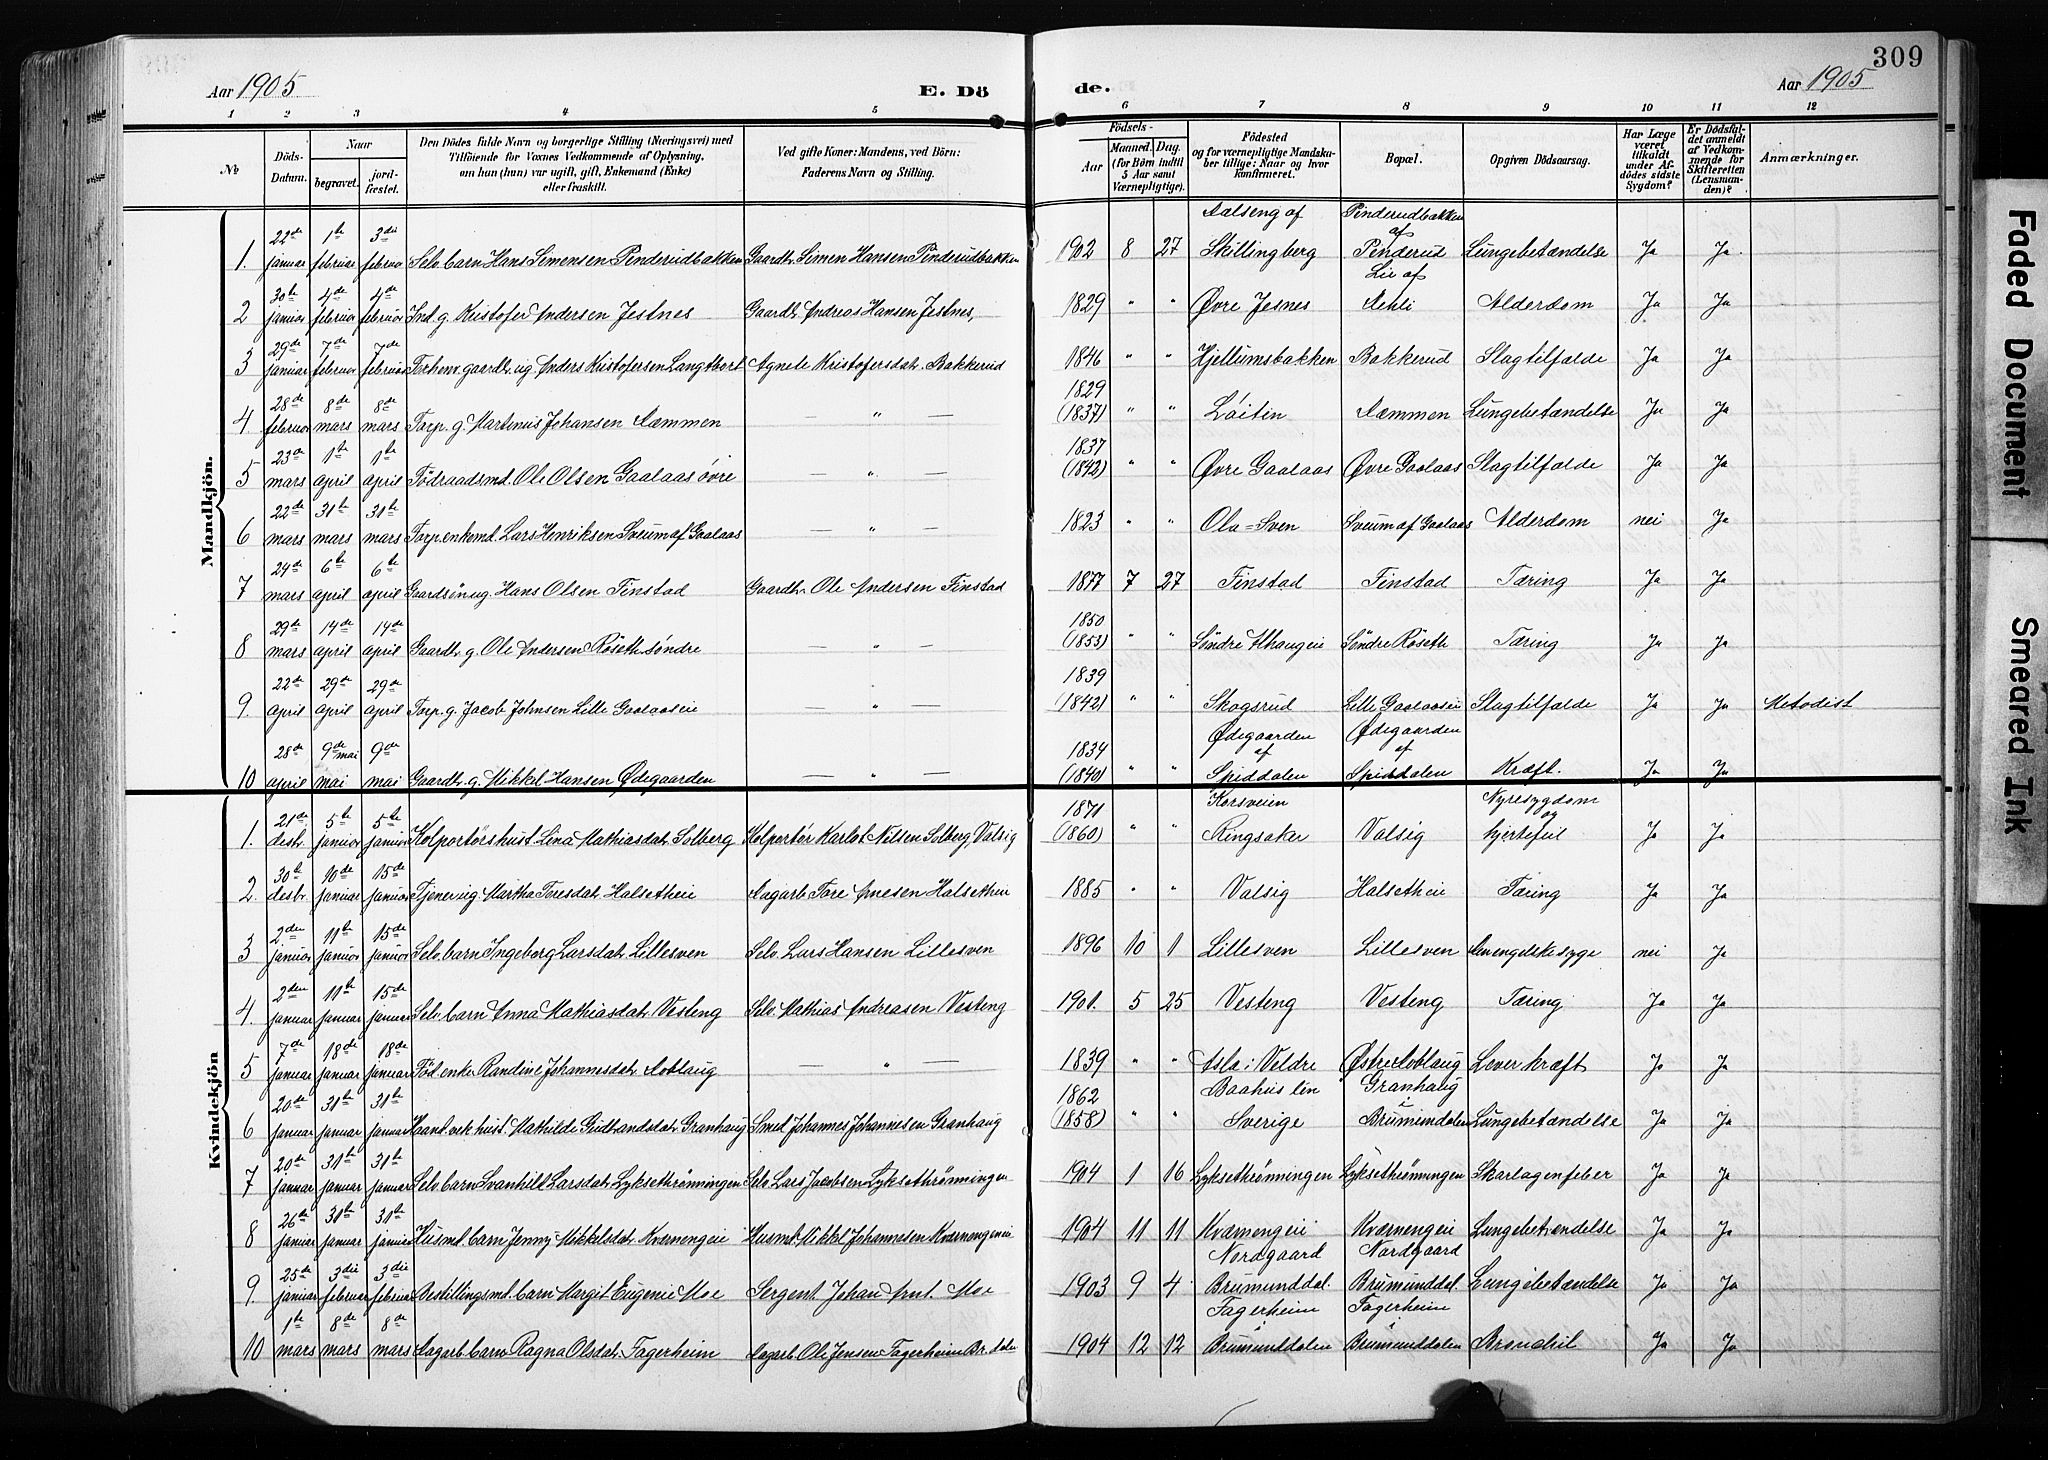 309
Aar 1905
E. Döde.
Aar 1905
1 2 3 4 5 6 7 8 9 10 11 12
No
Döds-Datum.
Naar
begravet.
jordfæstet.
Den Dödes fulde Navn og borgerlige Stilling (Næringsvei) med
Tilföiende for Voxnes Vedkommende af Oplysning,
om hun (hun) var ugift, gift, Enkemand (Enke)
eller fraskilt.
Ved gifte Koner: Mandens, ved Börn:
Faderens Navn og Stilling.
Födsels-
Aar
Maaned. Dag.
(for Börn indtil
5 Aar samt
Værnepligtige).
Födested
og for værnepligtige Mandska-
ber tillige: Naar og hvor
konfirmeret.
Bopæl.
Opgiven Dödsaarsag.
Har Læge
været
tilkaldt
under Af-
dödes sidste
Sygdom?
Er Dödsfal-
det anmeldt
af Vedkom-
mende for
Skifteretten
(Lensman-
den)?
Anmærkninger.
Mandkjön.
1. 22de januar 1te februar 3die februar Selv. barn Hans Simensen Pinderudbakken Gaardbr. Simen Hansen Pinderudbakken 1902 8 27 Aalseng af Skillingberg Pinderudbakken af Pinderud Lungebetændelse Ja Ja.
2 30te januar 4de februar 4de februar Ind. g. Kristofer Andersen Jestnes Gaardbr. Andreas Hansen Jestnes, 1829 " " Øvre Jesnes Lie af Aehli Alderdom Ja Ja
3 29de januar 7de februar 7de februar Forhenv. gaardbr. ug. Anders Kristofersen Langtbort Agnete Kristofersdat. Bakkerud 1846 " " Hjellumsbakken Bakkerud Slagtilfælde Ja Ja
4 28de februar 8de mars 8de mars Torp. g. Martinus Johansen Aammen — " — 1829 (1837) " " Løiten Aammen Lungebetændelse Ja Ja
5 23de mars 1te april 1te april Födraadsmd. Ole Olsen Gaalaas övre — " — 1837 (1842) " " Øvre Gaalaas Øvre Gaalaas Slagtilfælde Ja Ja
6 22de mars 31te mars 31te mars Torp. enkemd. Lars Henriksen Sveum af Gaalaas — " — 1823 " " Ola=Sven Sveum af Gaalaas Alderdom nei Ja
7 24de mars 6te april 6te april Gaardsön ug. Hans Olsen Finstad Gaardbr. Ole Andersen Finstad 1877 7 27 Finstad Finstad Tæring Ja Ja
8 29de mars 14de april 14de april Gaardbr. g. Ole Andersen Röseth söndre — " — 1850 (1853) " " Söndre Alhaugeie Söndre Röseth Tæring Ja Ja
9. 22de april 29de april 29de april Torp. g. Jacob Johnsen Lille Gaalaaseie — " — 1839 (1842) " " Skogsrud Lille Gaalaaseie Slagtilfælde Ja Ja Metodist
10 28de april 9de mai mai 9de mai Gaardbr. g. Mikkel Hansen Ødegaarden — " — 1834 (1840) " " Ødegaarden af Spiddalen Ødegaarden af Spiddalen Kræft. Ja Ja
Kvindekjön
1. 21de desbr. 5te januar 5te januar Kolportörshust. Lina Mathiasdat. Solberg Kolportör Karlot Nilsen Solberg, Valsig 1871 (1860) " " Korsveien Ringsaker Valsig Nyresygdom og hjertefeil Ja Ja
2. 30te desbr. 10de januar 15de januar Tjener ug. Martha Toresdat. Halsetheie Dagarb. Tore Arnesen Halsetheie 1885 " " Valsig Halsetheie Tæring Ja Ja
3 2den januar 11te januar 15de januar Selv. barn Ingeborg Larsdat. Lillesven Selv. Lars Hansen Lillesven 1896 10 1 Lillesven Lillesven Den engelske syge nei Ja
4. 2den januar 11te januar 15de januar Selv. barn Anna Mathiasdat. Vesteng Selv. Mathias Andreasen Vesteng 1901. 5 25 Vesteng Vesteng Tæring Ja Ja
5 7de januar 18de januar 18de januar Föd. enke Randine Johannesdat. Aoblaug — " — 1839 " " Asla i Veldre Østre Aoblaug Lever kræft Ja Ja
6 20de januar 31te januar 31te januar Haandverk. hust. Mathilde Gudbrandsdat. Granhaug Smed Johannes Johannesen Granhaug 1862 (1858) " " Baahus len Sverige Granhaug i Brumunddalen Lungebetændelse Ja Ja
7 20de januar 31te januar 31te januar Selv. barn Svanhild Larsdat. Lyksethrønningen Selv. Lars Jacobsen Lyksethrønningen 1904 1 16 Lyksethrønningen Lyksethrønningen Skarlagenfeber Ja Ja
8 26de januar 31te januar 31te januar Husmd. barn Jenny Mikkelsdat. Kværnengeie Husmd. Mikkel Johannesen Kværnengeie 1904 11 11 Kværnengeie Kværnengeie Lungebetændelse Ja Ja
9. 25de januar 3die februar 3die februar Bestillingsmd. barn Margit Eugenie Moe Sergent Johan Arnt Moe 1903 9 4 Nordgaard Brumunddal. Nordgaard Brumunddal. Lungebetændelse Ja Ja
10 1te mars 8de mars 8de mars Dagarb. barn Ragna Olsdat. Fagerheim Dagarb. Ole Jensen Fagerheim Br.dalen 1904 12 12 Fagerheim i Brumunddalen Fagerheim i Brumunddalen Bronchit Ja Ja
Faded Document
Smeared Ink